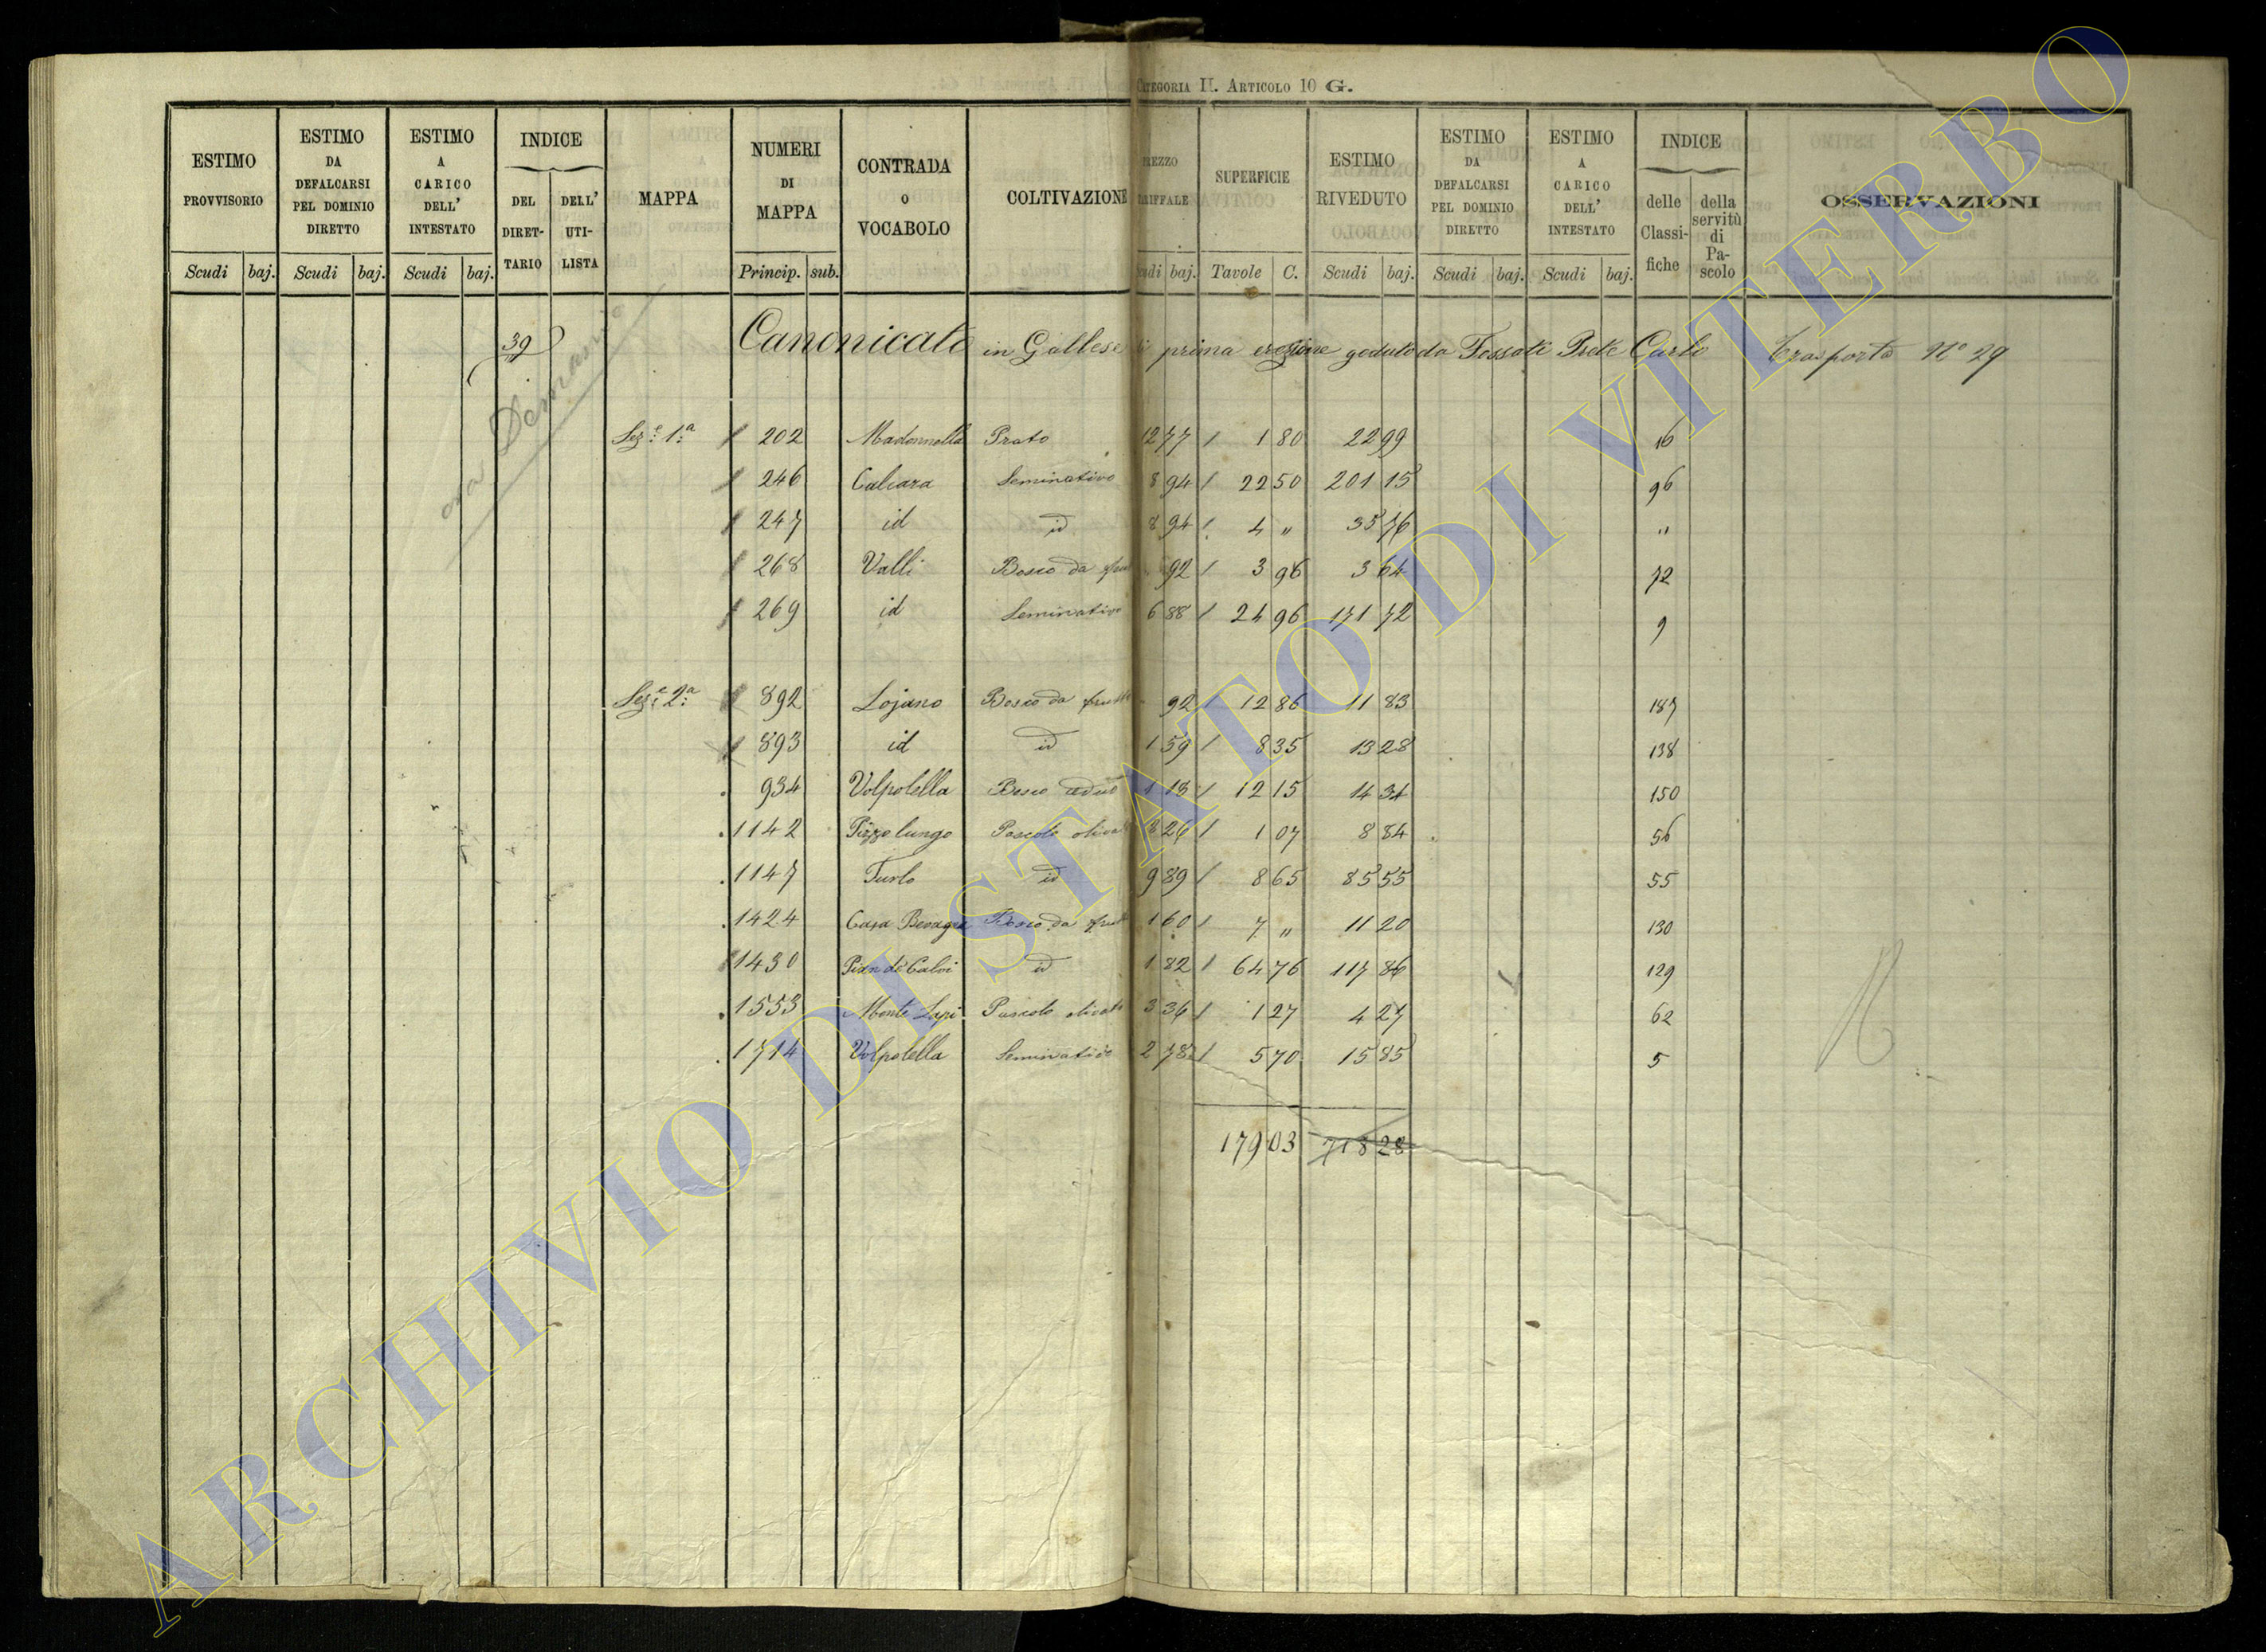 CATEGORIA II. ARTICOLO 10 G.
ESTIMO PROVVISORIO | ESTIMO DA DEFALCARSI PEL DOMINIO DIRETTO | ESTIMO A CARICO DELL' INTESTATO | INDICE DEL DIRETTARIO | DELL' UTILISTA | MAPPA | NUMERI DI MAPPA | CONTRADA O VOCABOLO | COLTIVAZIONE | PREZZO TARIFFALE | SUPERFICIE | ESTIMO RIVEDUTO | ESTIMO DA DEFALCARSI PEL DOMINIO DIRETTO | ESTIMO A CARICO DELL' INTESTATO | INDICE delle Classifiche | della servitù di Pascolo | OSSERVAZIONI
Scudi baj. Scudi baj. Scudi baj. Princip. sub. Scudi baj. Tavole C. Scudi baj. Scudi baj. Scudi baj.
39 Canonicato in Gallese di prima erezione goduto da Fossati Prete Carlo Trasporto N° 29
ora Demanio
Sez.e 1.a 202 Madonnella Prato 12 77 1 80 22 99 16
246 Calcara Seminativo 8 94 22 50 201 15 96
247 id id 8 94 4 " 35 76 "
268 Valli Bosco da frut 92 3 96 3 64 72
269 id Seminativo 6 88 24 96 171 72 9
Sez.e 2.a 892 Lojano Bosco da frutto 92 12 86 11 83 187
893 id id 1 59 8 35 13 28 138
934 Volpolella Bosco ceduo 1 18 12 15 14 34 150
1142 Pizzo lungo Pascolo olivato 8 26 1 07 8 84 56
1147 Furlo id 9 89 8 65 85 55 55
1424 Casa Bevagna Bosco da frut 1 60 7 " 11 20 130
1430 Pian de Calvi id 1 82 64 76 117 86 129
1553 Monte Lupi Pascolo olivato 3 36 1 27 4 27 62
1714 Volpolella Seminativo 2 78 5 70 15 85 5
179 03 718 28
ARCHIVIO DI STATO DI VITERBO